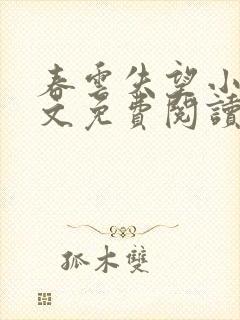 春雲失望小
文免費閱讀
孤木雙